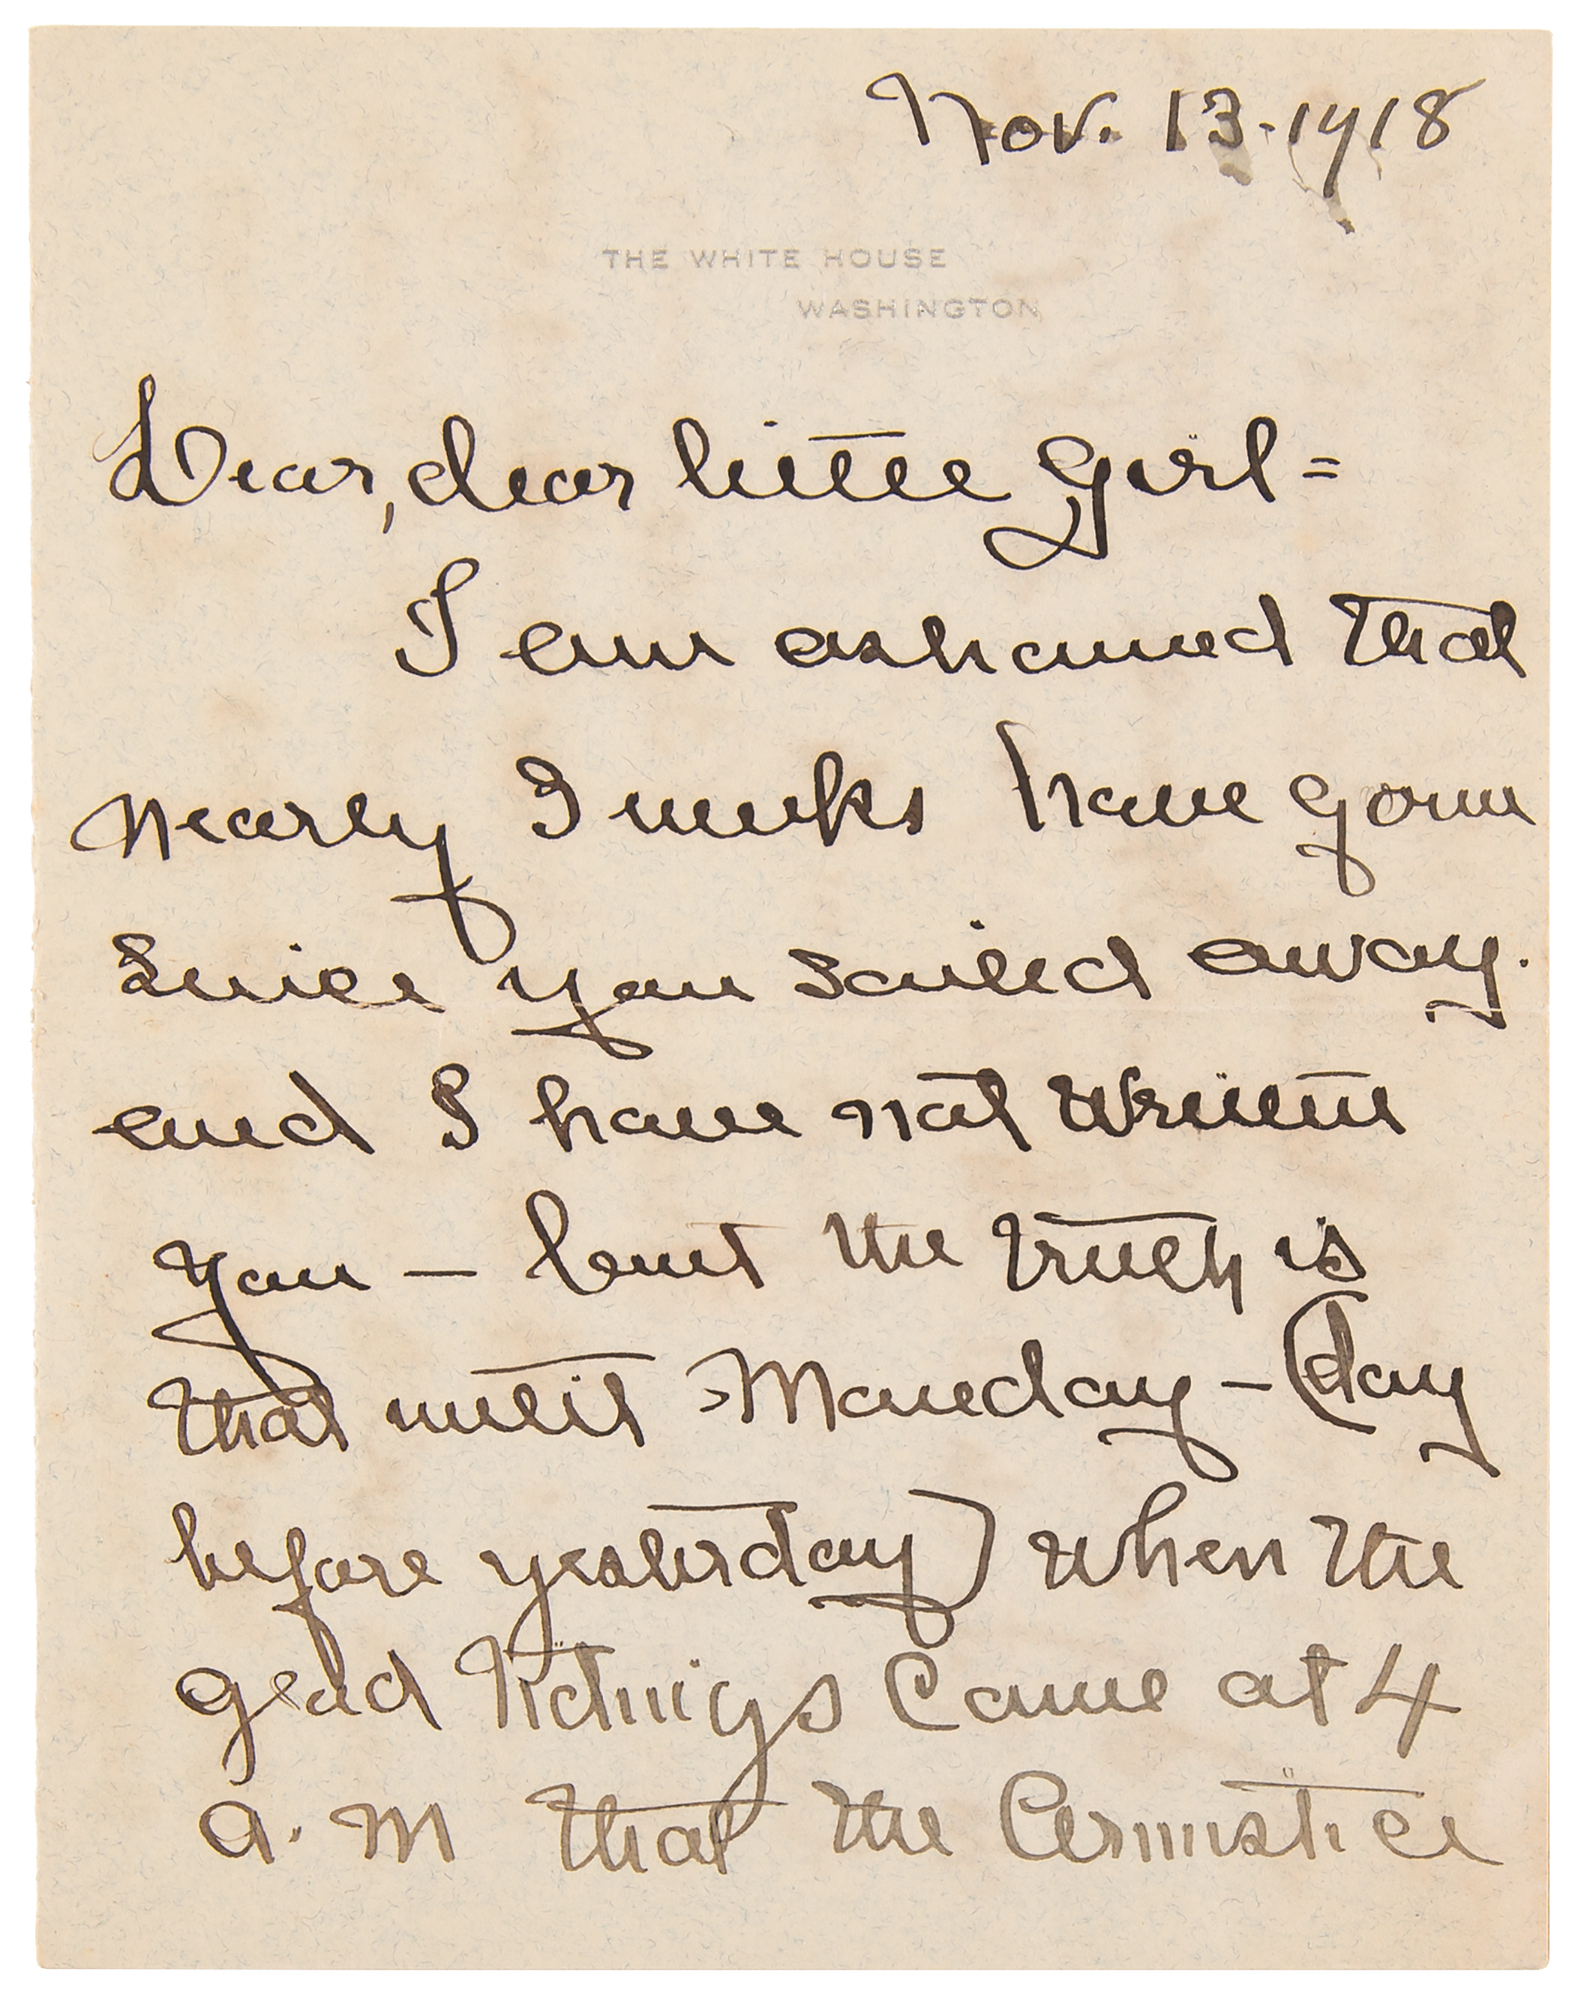 Nov. 13. 1918
THE WHITE HOUSE
WASHINGTON
Dear, dear little girl =
I am ashamed that
nearly 3 weeks have gone
since you sailed away.
and I have not written
you – but the truth is
that until Monday – (day
before yesterday) when the
glad tidings came at 4
a. m that the Armistice